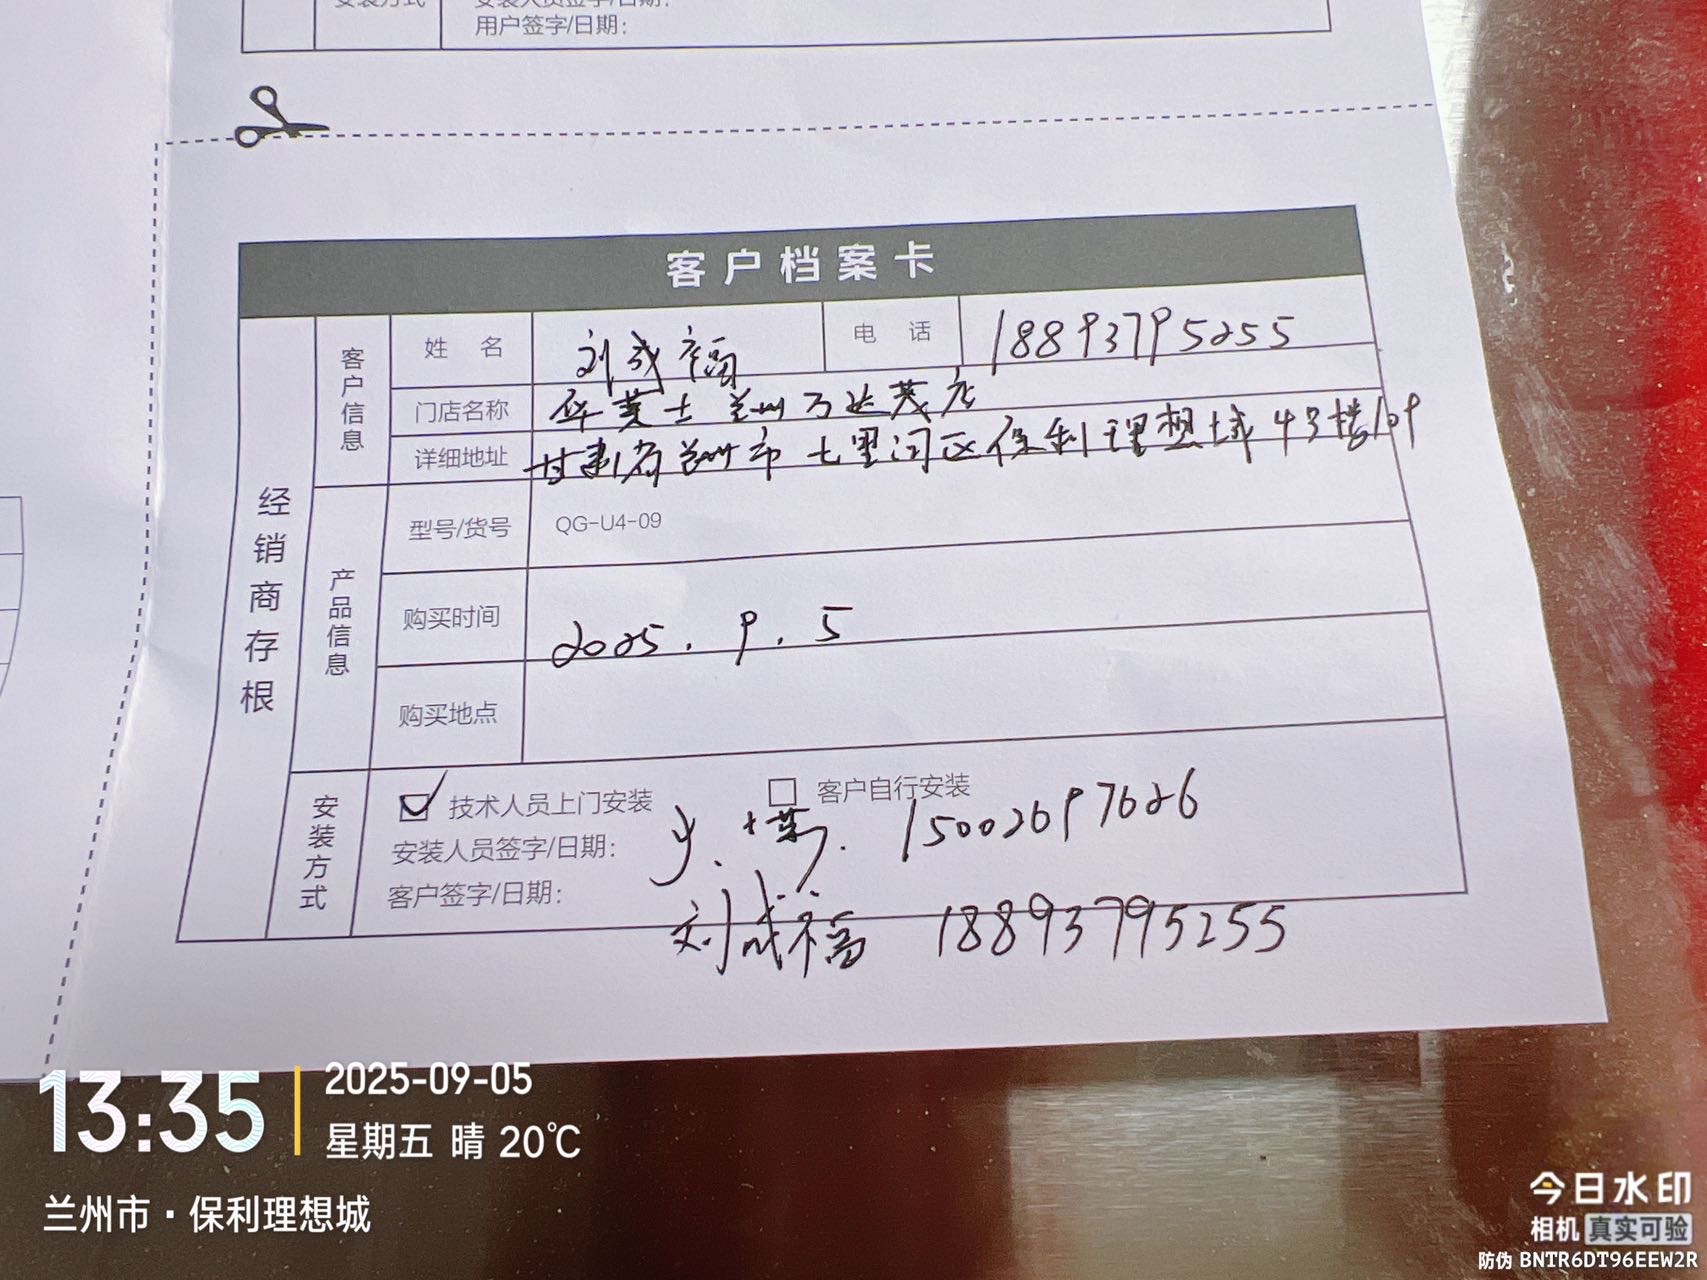 用户签字/日期:
客户档案卡
经销商存根
客户信息
姓 名 刘成福 电 话 18893795255
门店名称 华莱士兰州万达茂店
详细地址 甘肃省兰州市七里河区保利理想城4号楼109
产品信息
型号/货号 QG-U4-09
购买时间 2025.9.5
购买地点
安装方式
技术人员上门安装 客户自行安装
安装人员签字/日期: 15002697626
客户签字/日期: 刘成福 18893795255
13:35
2025-09-05
星期五 晴 20℃
兰州市·保利理想城
今日水印
相机 真实可验
防伪 BNTR6DT96EEW2R